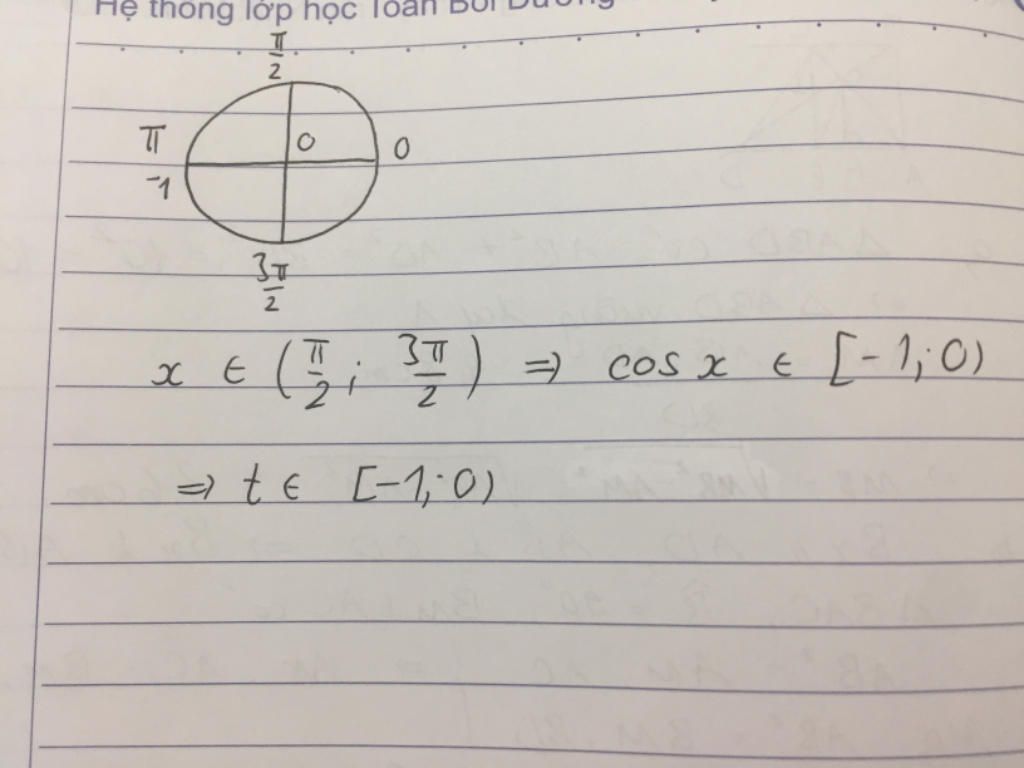 Hệ thống lớp học Toán Bồi Dưỡng
π/2
π 0 0
-1
3π/2
x ∈ (π/2; 3π/2) => cos x ∈ [-1; 0)
=> t ∈ [-1; 0)